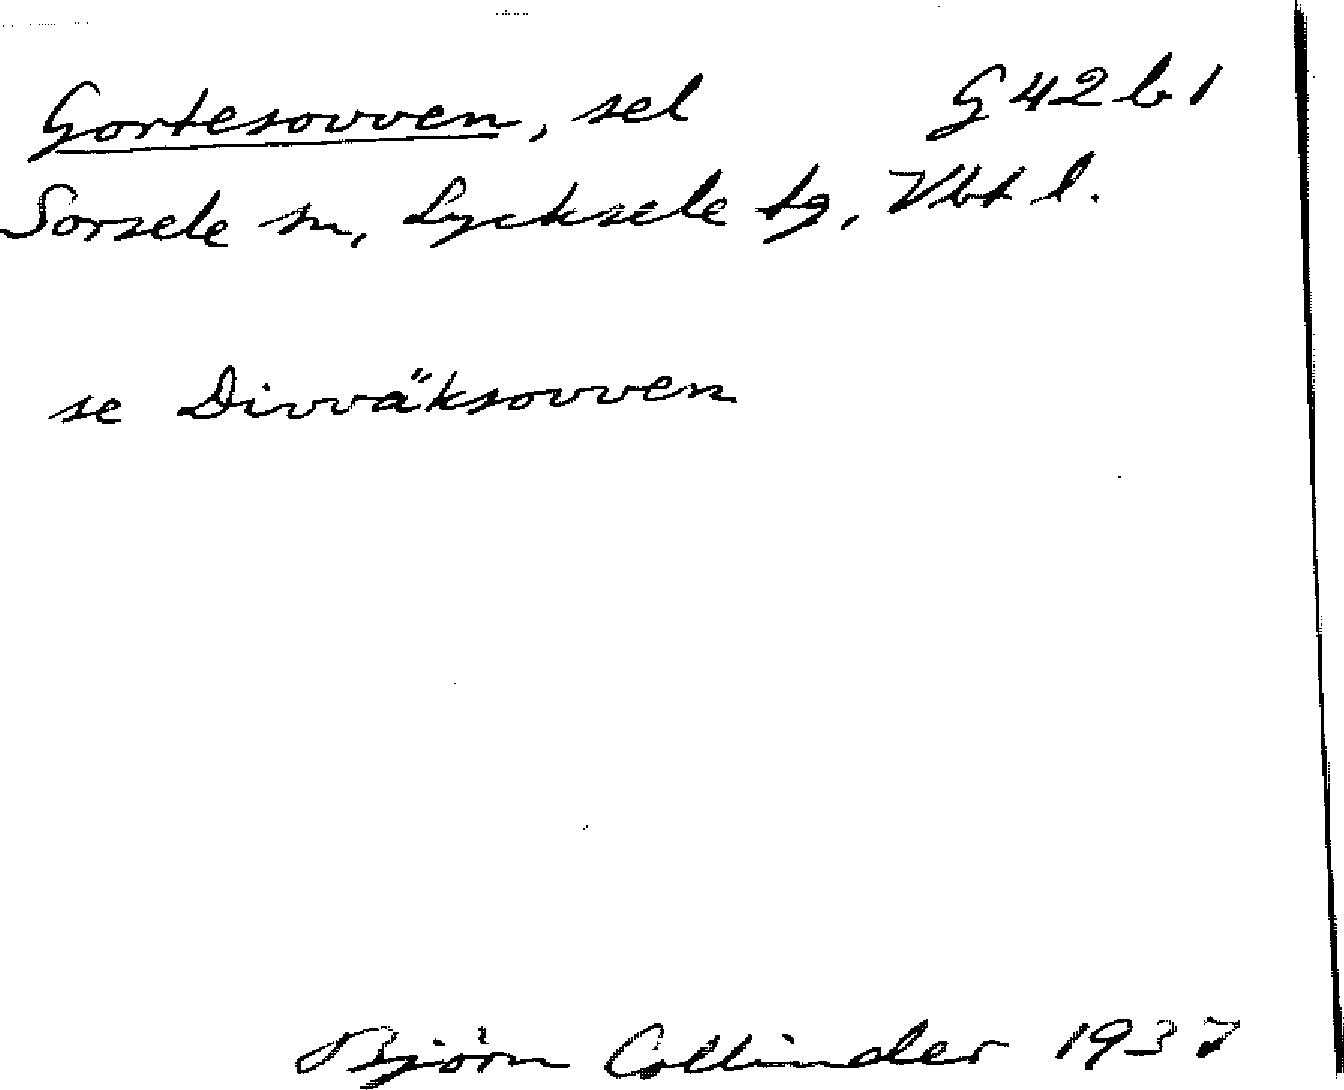 Gortesovven, sel G 42 b 1
Sorsele sn, Lycksele tg, Vbt l.
se Divväksovven
Björn Collinder 1937